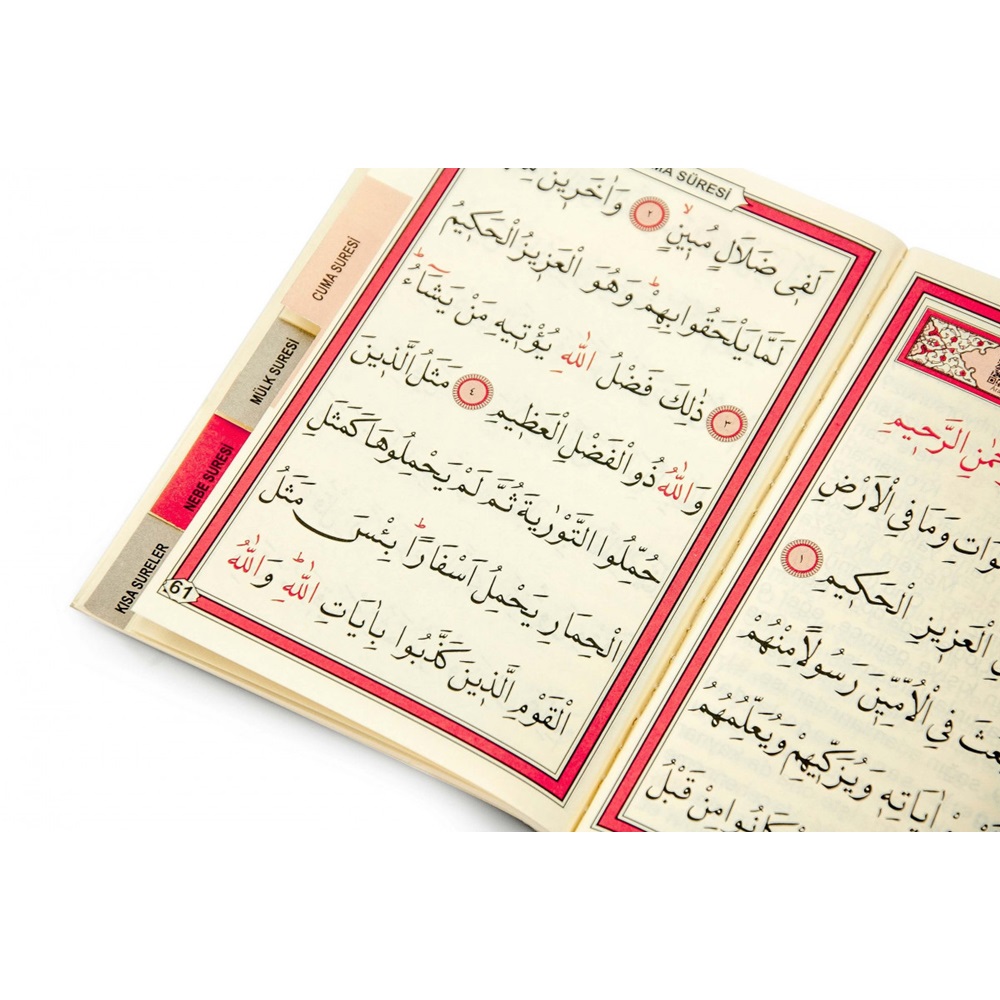 CUMA SURESİ
MÜLK SURESİ
NEBE SURESİ
KISA SURELER
SÜRESİ
لَفٖى ضَلَالٍ مُبٖينٍۙ ﴿٢﴾ وَاٰخَرٖينَ
لَمَّا يَلْحَقُوا بِهِمْؕ وَهُوَ الْعَزٖيزُ الْحَكٖيمُ
﴿٣﴾ ذٰلِكَ فَضْلُ اللّٰهِ يُؤْتٖيهِ مَنْ يَشَٓاءُؕ
وَاللّٰهُ ذُو الْفَضْلِ الْعَظٖيمِ ﴿٤﴾ مَثَلُ الَّذٖينَ
حُمِّلُوا التَّوْرٰيةَ ثُمَّ لَمْ يَحْمِلُوهَا كَمَثَلِ
الْحِمَارِ يَحْمِلُ اَسْفَارًاؕ بِئْسَ مَثَلُ
الْقَوْمِ الَّذٖينَ كَذَّبُوا بِاٰيَاتِ اللّٰهِؕ وَاللّٰهُ
61
الرَّحٖيمِ
وَمَا فِي الْاَرْضِ
الْعَزٖيزِ الْحَكٖيمِ ﴿١﴾
فِي الْاُمِّيّٖنَ رَسُولًا مِنْهُمْ
اٰيَاتِهٖ وَيُزَكّٖيهِمْ وَيُعَلِّمُهُمُ
كَانُوا مِنْ قَبْلُ